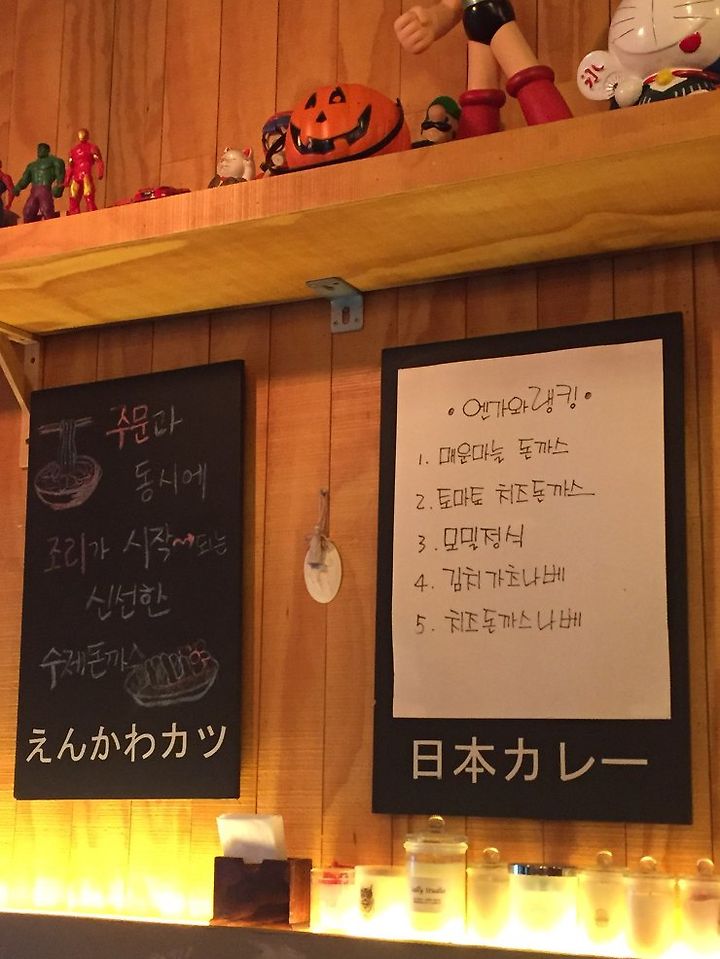 주문과
동시에
조리가 시작되는
신선한
수제돈까스
えんかわカツ
• 엔가와랭킹 •
1. 매운마늘 돈까스
2. 토마토 치즈돈까스
3. 모밀정식
4. 김치가츠나베
5. 치즈돈까스나베
日本カレー